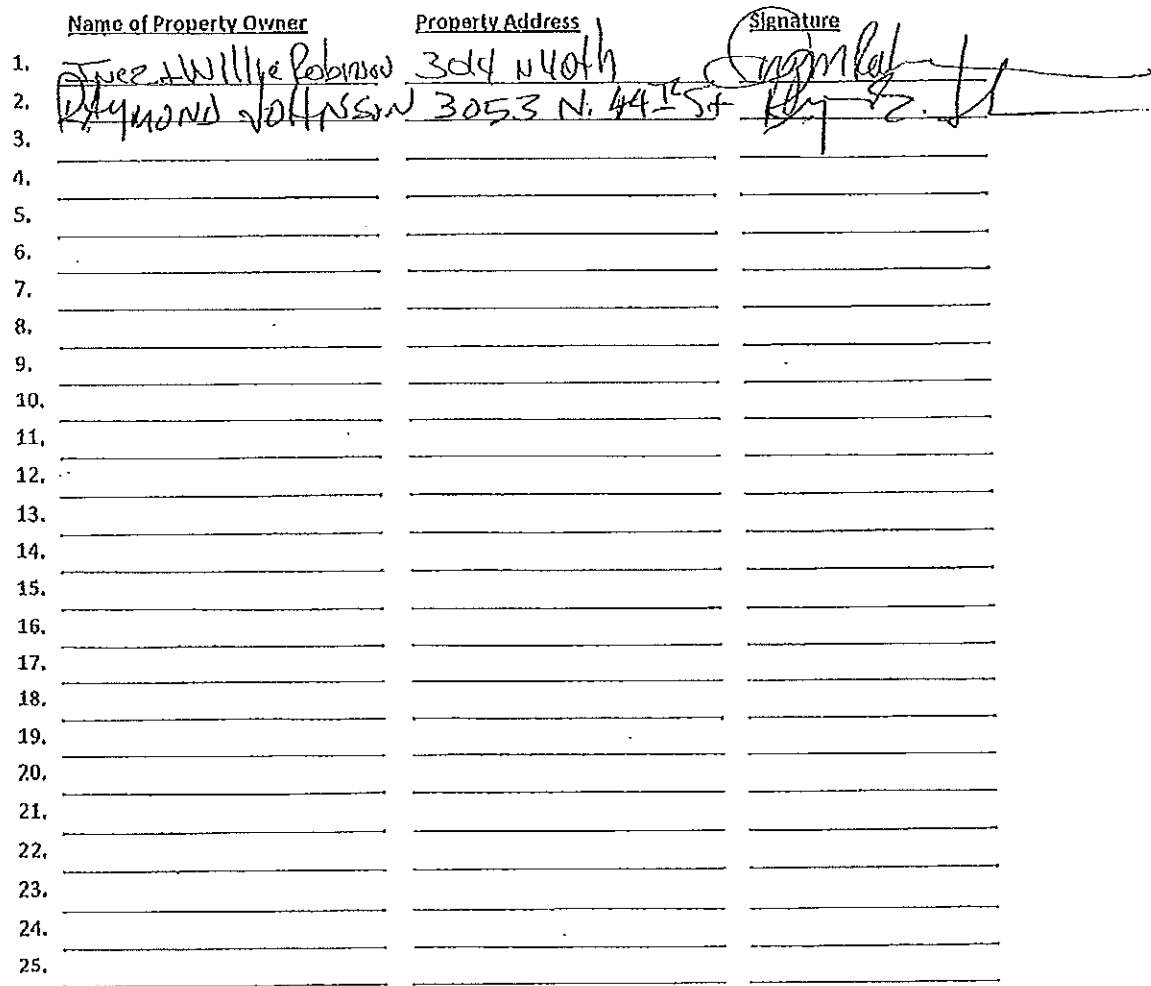 Name of Property Owner Property Address Signature
1. Inez + Willie Robinson N 40th
2. RAYMOND JOHNSON 3053 N. 44th St
3.
4.
5.
6.
7.
8.
9.
10.
11.
12.
13.
14.
15.
16.
17.
18.
19.
20.
21.
22.
23.
24.
25.